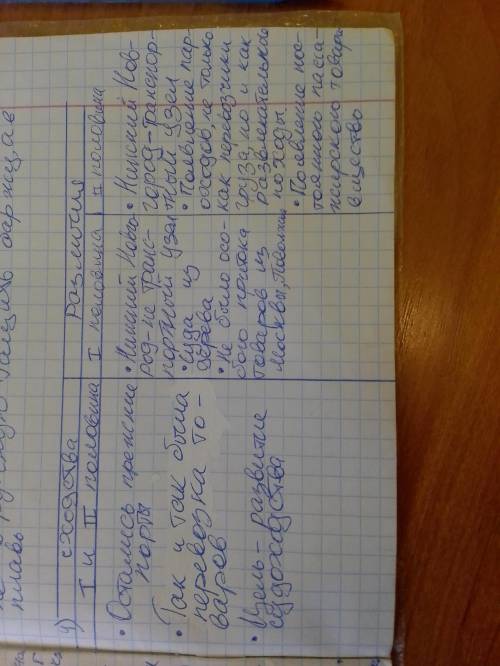 тащить баржи, а в
плавь
4) сходства
Различия
I и II половина
I половина
I половина
• Остались прежние
порты
• Так и так была
перевозка то-
варов
• Цель - развитие
судоходства
• Нижний Новго-
род - не транс-
портный узел
• Суда из
дерева
• Не было осо-
бого притока
товаров из
Москвы,
• Нижний Нов-
город - транспор-
тный узел
• Появление пар-
оходов, не только
как перевозчики
груза, но и как
развлекательные
походы.
• Появление пос-
тоянного пасса-
жирского